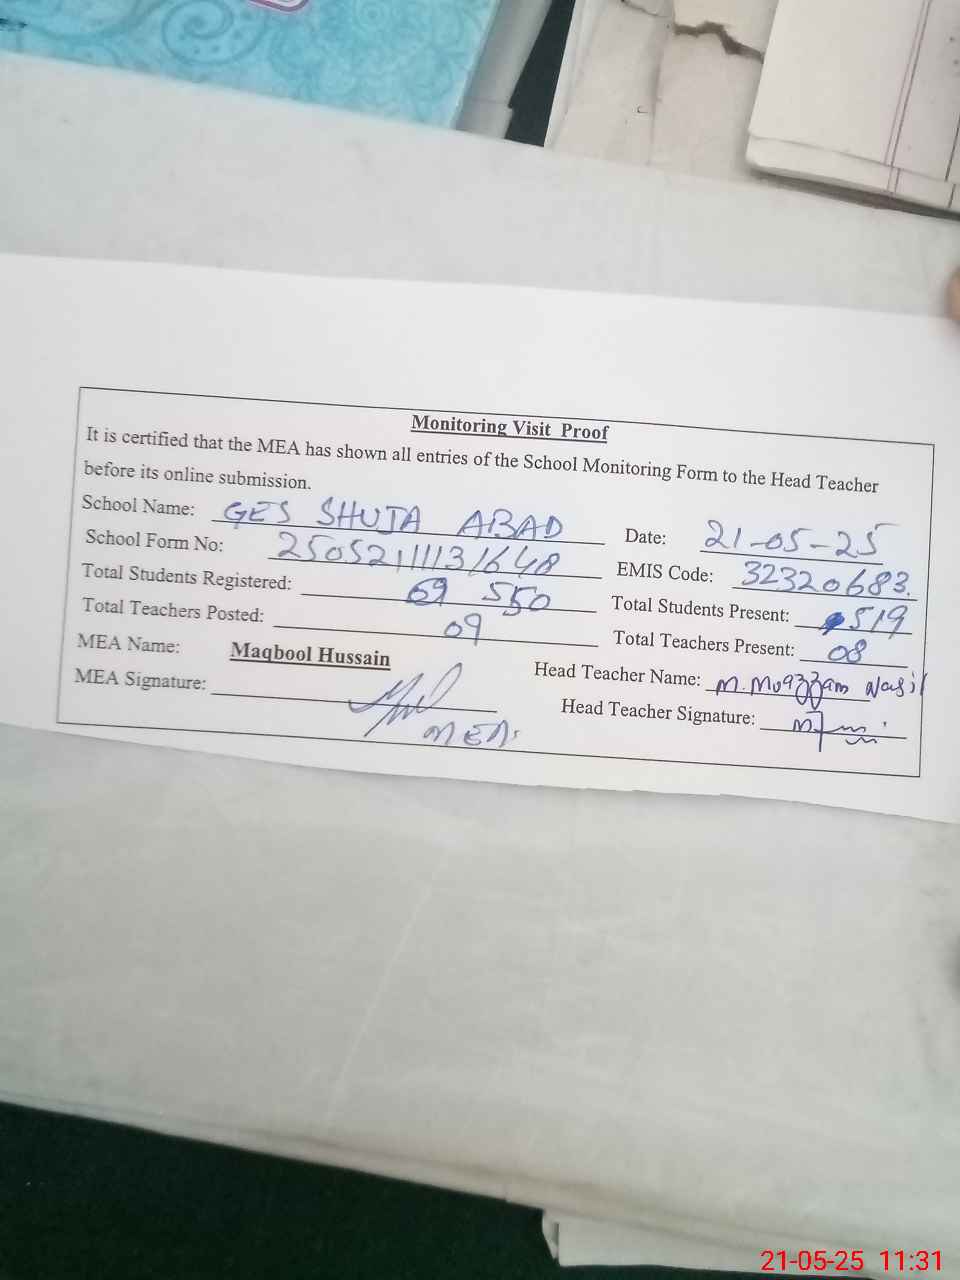 Monitoring Visit Proof
It is certified that the MEA has shown all entries of the School Monitoring Form to the Head Teacher
before its online submission.
School Name: GES SHUJA ABAD Date: 21-05-25
School Form No: 25052111131648 EMIS Code: 32320683.
Total Students Registered: 550 Total Students Present: 519
Total Teachers Posted: 09 Total Teachers Present: 08
MEA Name: Maqbool Hussain Head Teacher Name: M. Muazzam Nasir
MEA Signature: Head Teacher Signature:
MEA
21-05-25 11:31